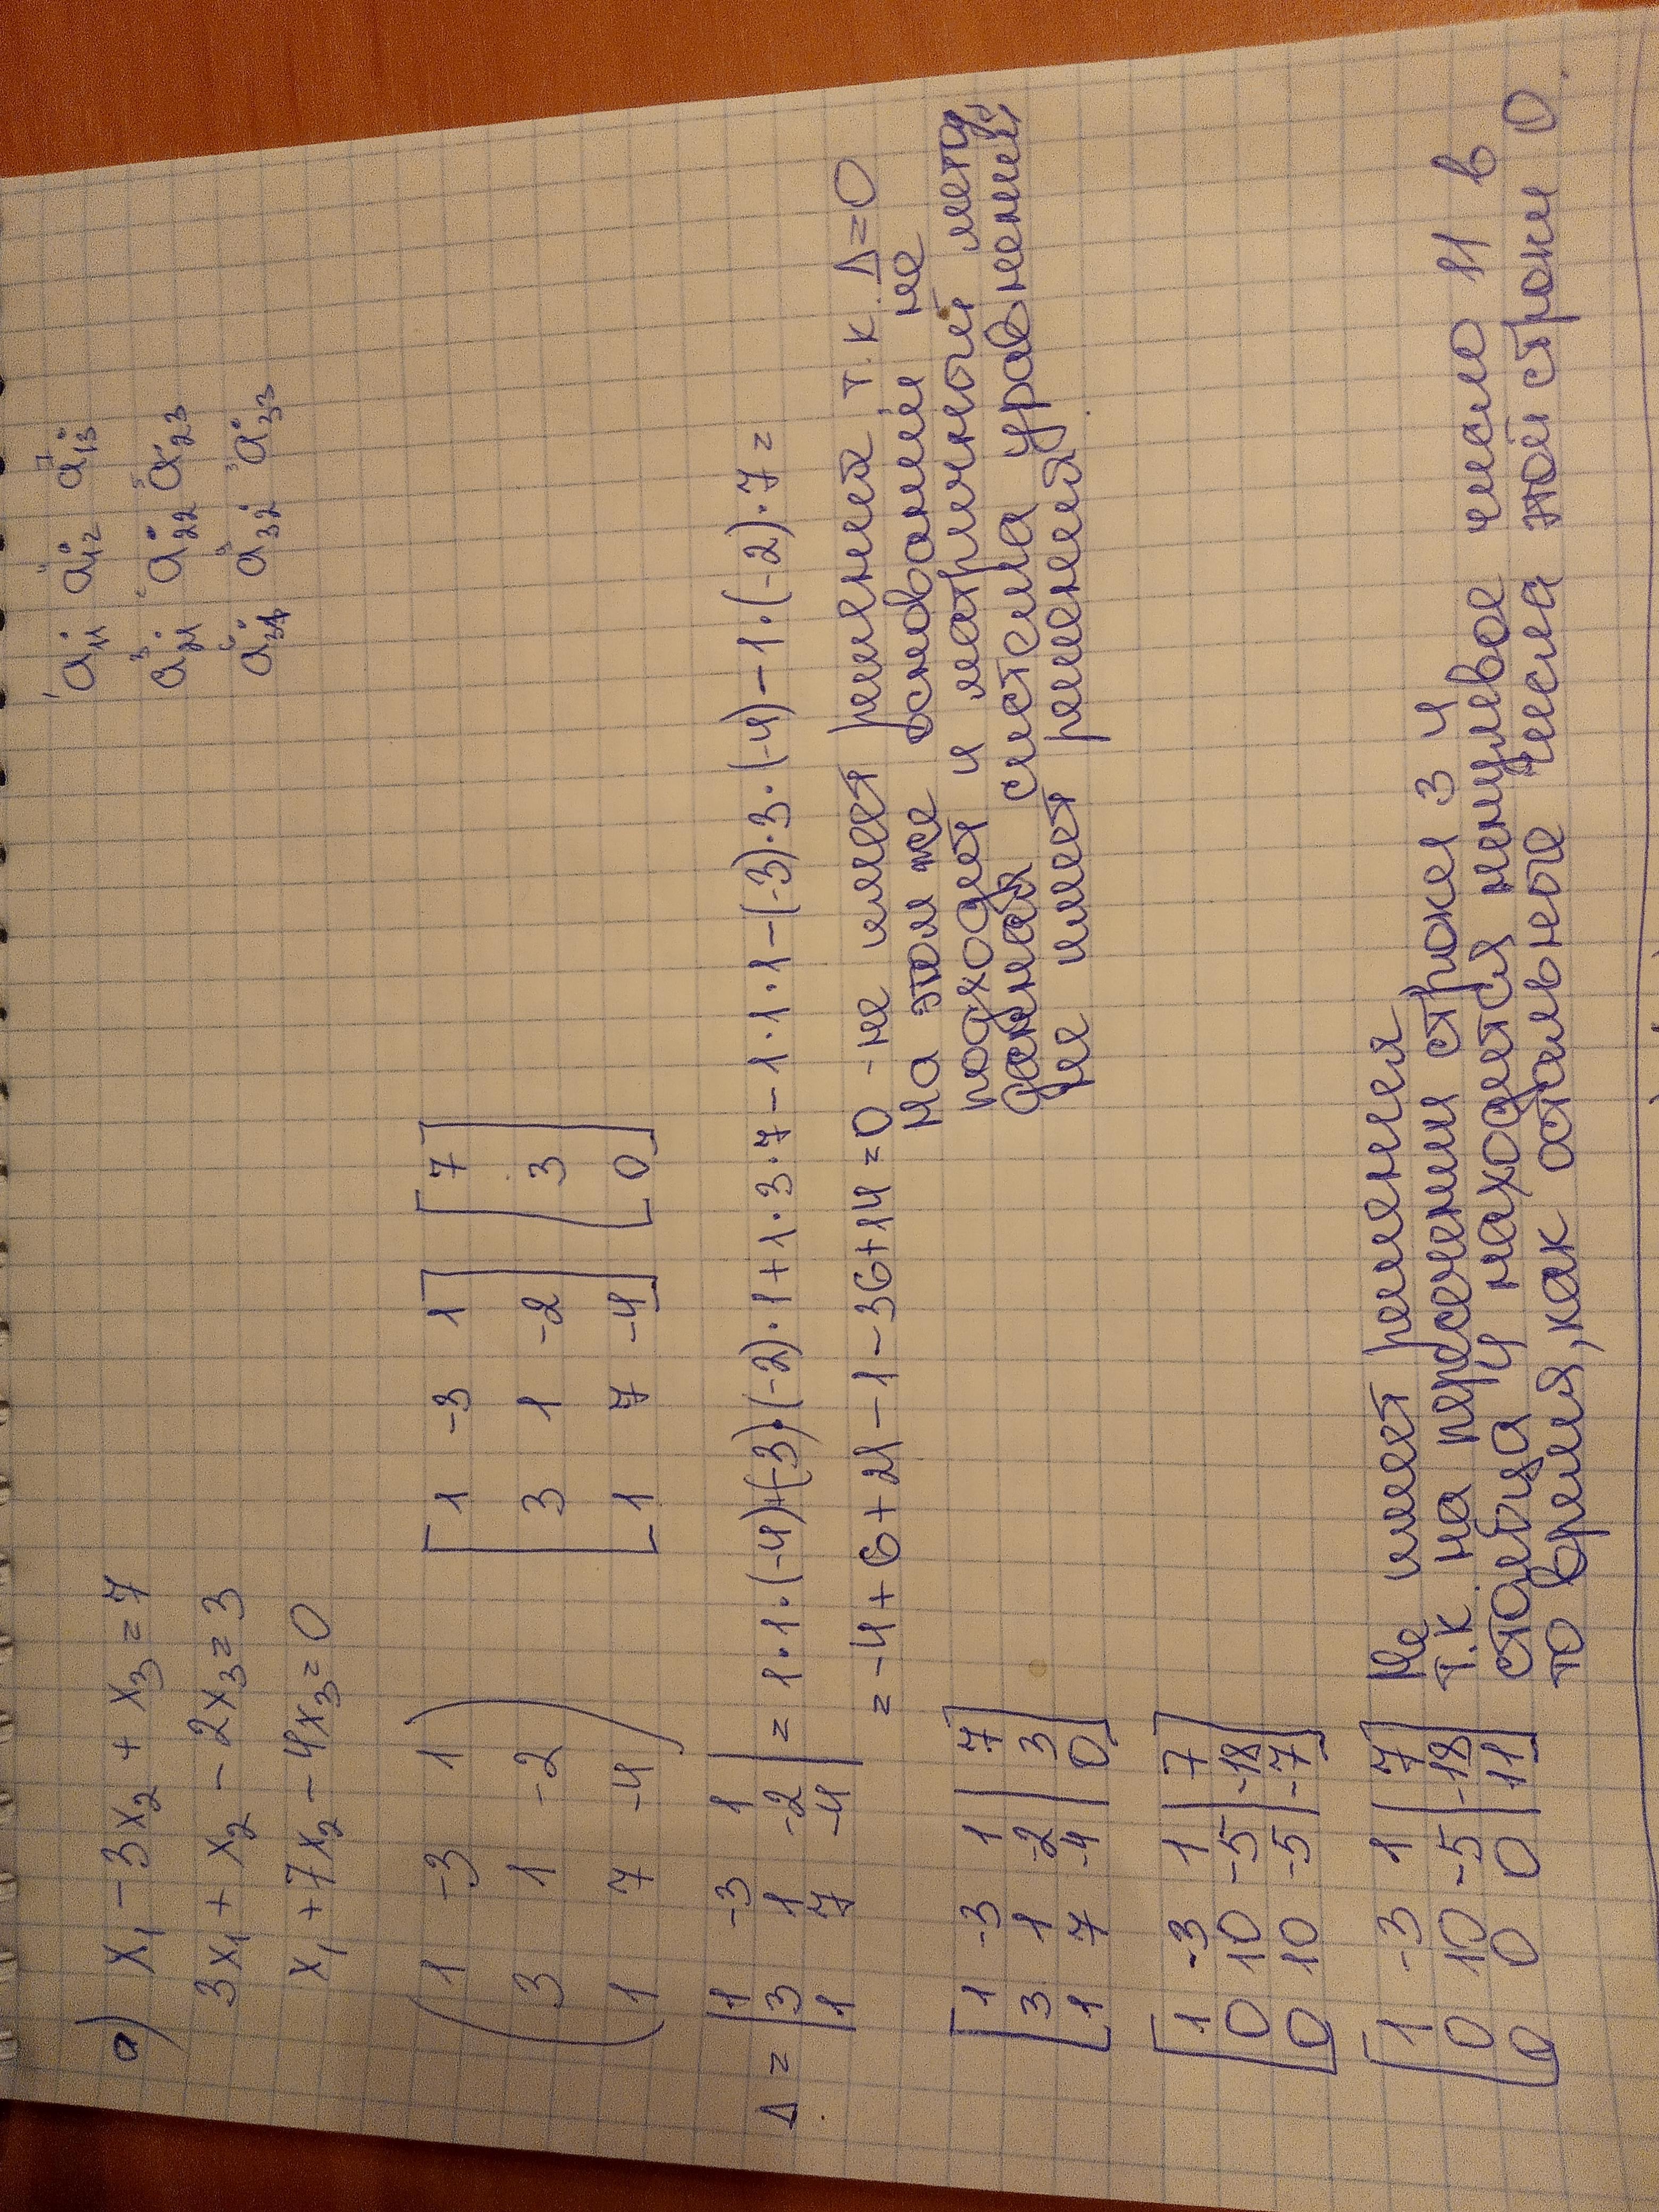 a) x₁ - 3x₂ + x₃ = 7
3x₁ + x₂ - 2x₃ = 3
x₁ + 7x₂ - 4x₃ = 0
a₁₁ a₁₂ a₁₃
a₂₁ a₂₂ a₂₃
a₃₁ a₃₂ a₃₃
1 -3 1
3 1 -2
1 7 -4
1 -3 1 7
3 1 -2 3
1 7 -4 0
1 -3 1
Δ = 3 1 -2 = 1·1·(-4)+(-3)·(-2)·1+1·3·7-1·1·1-(-3)·3·(-4)-1·(-2)·7=
1 7 -4
= -4+6+21-1-36+14=0 - не имеет решения т.к. Δ=0
На этом же основании не
подходет и матричный метод,
данная система уравнений
не имеет решения
1 -3 1 | 7
3 1 -2 | 3
1 7 -4 | 0
1 -3 1 | 7
0 10 -5 | -18
0 10 -5 | -7
1 -3 1 | 7
0 10 -5 | -18
0 0 0 | 11
Не имеет решения
т.к на пересечении строки 3 и
столбца 4 находится ненулевое число 11 в
то время, как остальные числа этой строки 0.